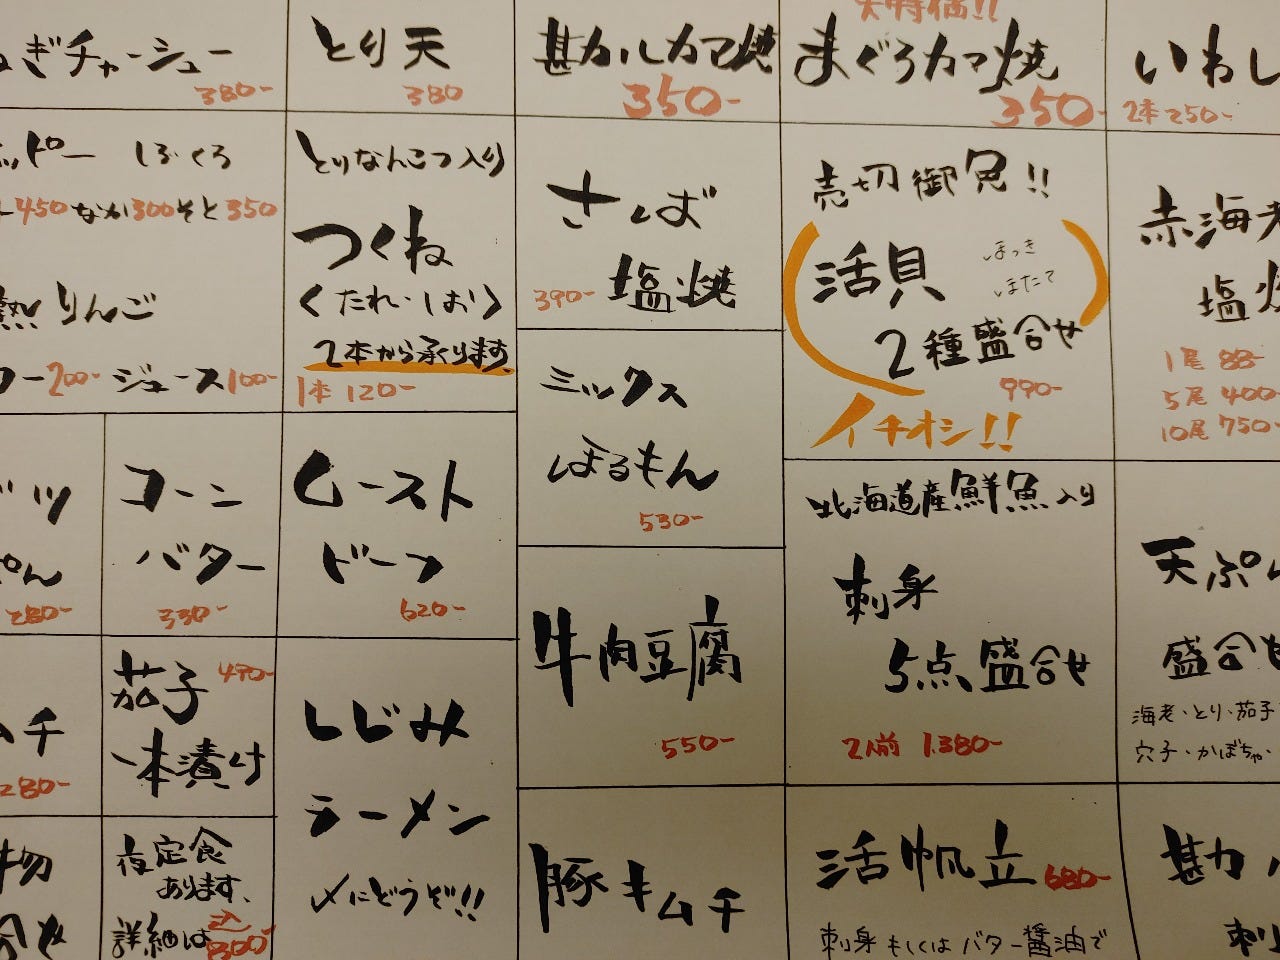 ぎチャーシュー
380-
ッピー しろ・くろ
450 なか300 そと350
熱りんご
200- ジュース100-
280-
コーン
バター
330-
ムチ
280-
茄子 490-
一本漬け
物
夜定食
あります、
詳細は
とり天
380
とりなんこつ入り
つくね
〈たれ・しお〉
2本から承ります。
1本 120-
ムースト
ドーフ
620-
しじみ
ラーメン
〆にどうぞ!!
甚カルカマ焼
350-
さば
390- 塩焼
ミックス
ほるもん
530-
牛肉豆腐
550-
豚キムチ
大特価!!
まぐろカマ焼
350-
売切御免!!
活貝
ほっき
ほたて
2種盛合せ
990-
イチオシ!!
北海道産鮮魚入り
刺身
5点盛合せ
2人前 1.380-
活帆立 680-
刺身もしくはバター醤油で
いわし
2本 250-
赤海老
塩焼
1尾 88-
5尾 400-
10尾 750-
天ぷ
盛合せ
海老・とり・茄子
穴子・かぼちゃ・
甚カ
刺